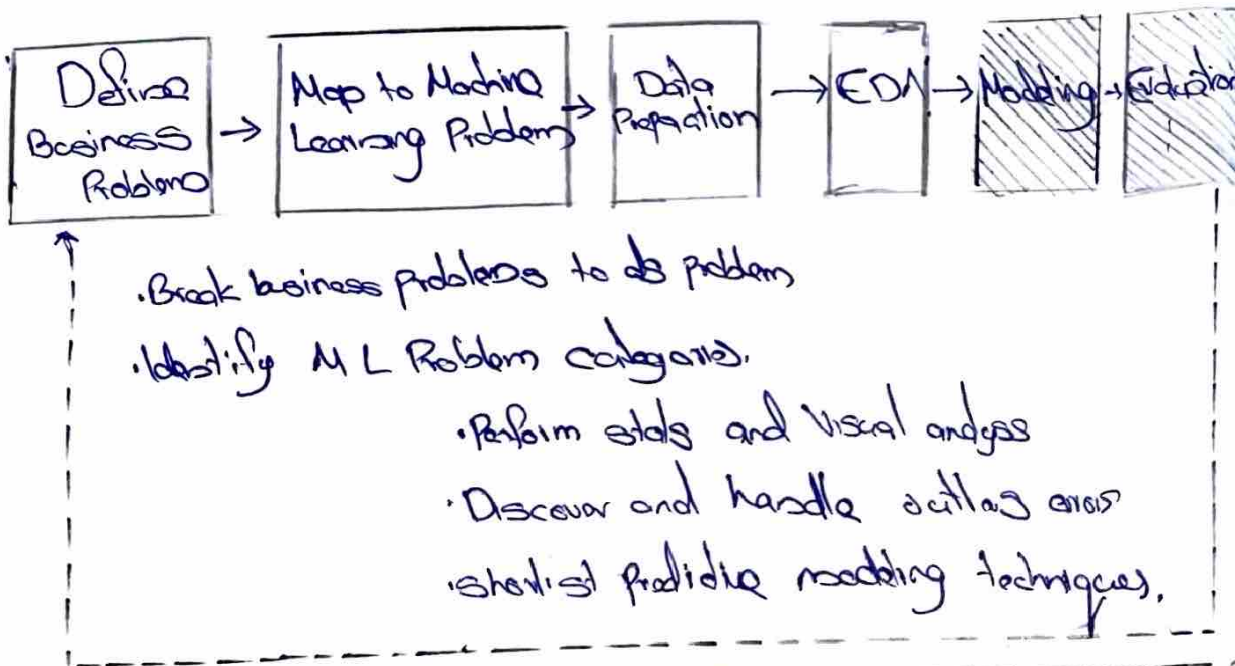 Define
Business
Problem
→
Map to Machine
Learning Problem
→
Data
Preparation
→
EDA
→
Modeling
→
Evaluation
.Break business problems to ds problem
.Identify ML Problem categories.
.Perform stats and Visual analysis
.Discover and handle outlay errors
.shortlist predictive modeling techniques.